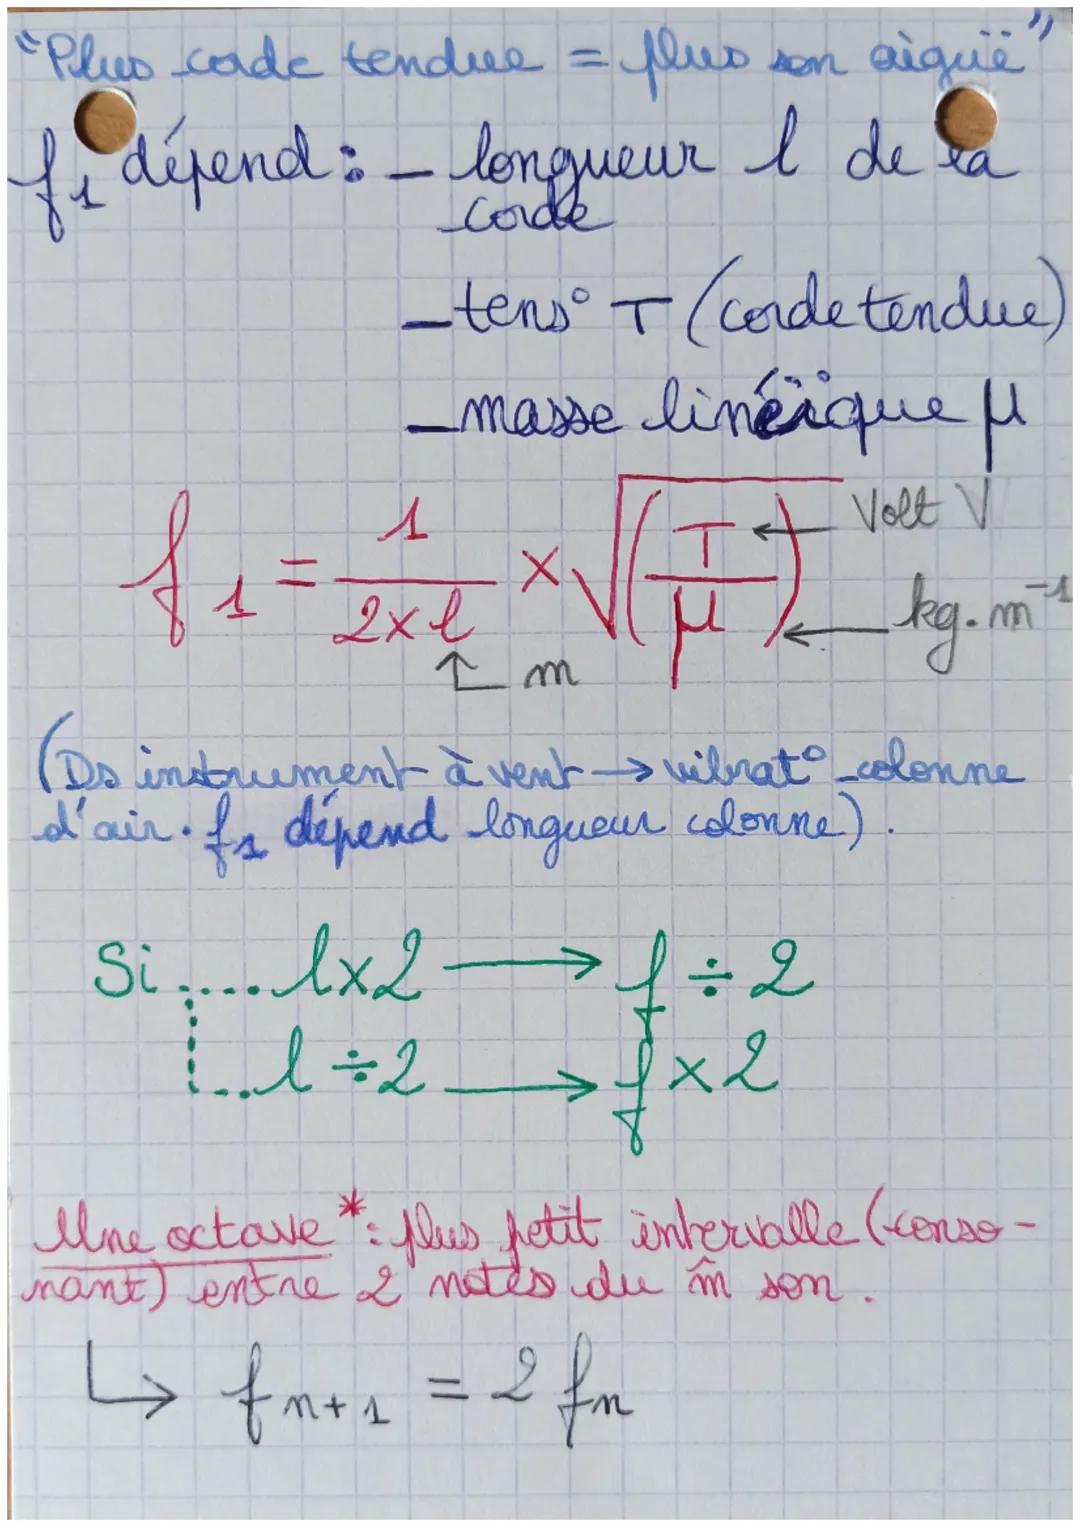 "Plus corde tendue = plus son aiguë"
f₁ dépend : - longueur l de la
corde
- tens° T (corde tendue)
- masse linéïque μ
f₁ = 1/(2×l) × √(T/μ) ← Volt V
← kg.m⁻¹
↑ m
(Ds instrument à vent → vibrat° colonne
d'air. f₁ dépend longueur colonne).
Si ..... l×2 → f÷2
... l÷2 → f×2
Une octave* : plus petit intervalle (conso-
nant) entre 2 notes du m̂ son.
↳ fₙ₊₁ = 2 fₙ